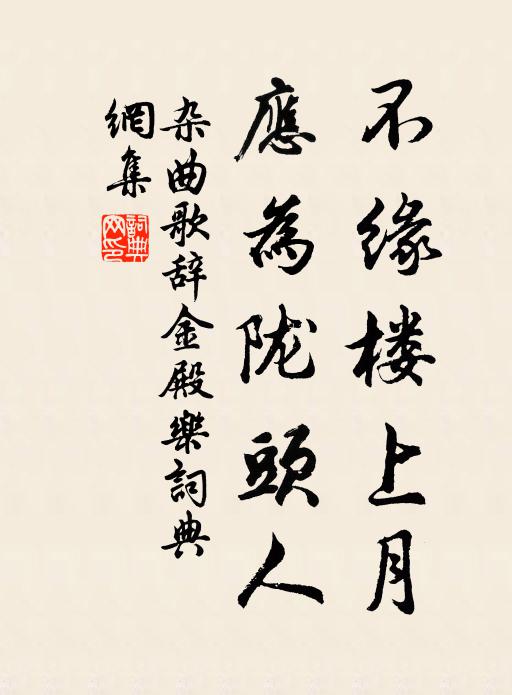 不缘楼上月
應為陇頭人
杂曲歌辞金殿樂詞典
網集
詞典
网印